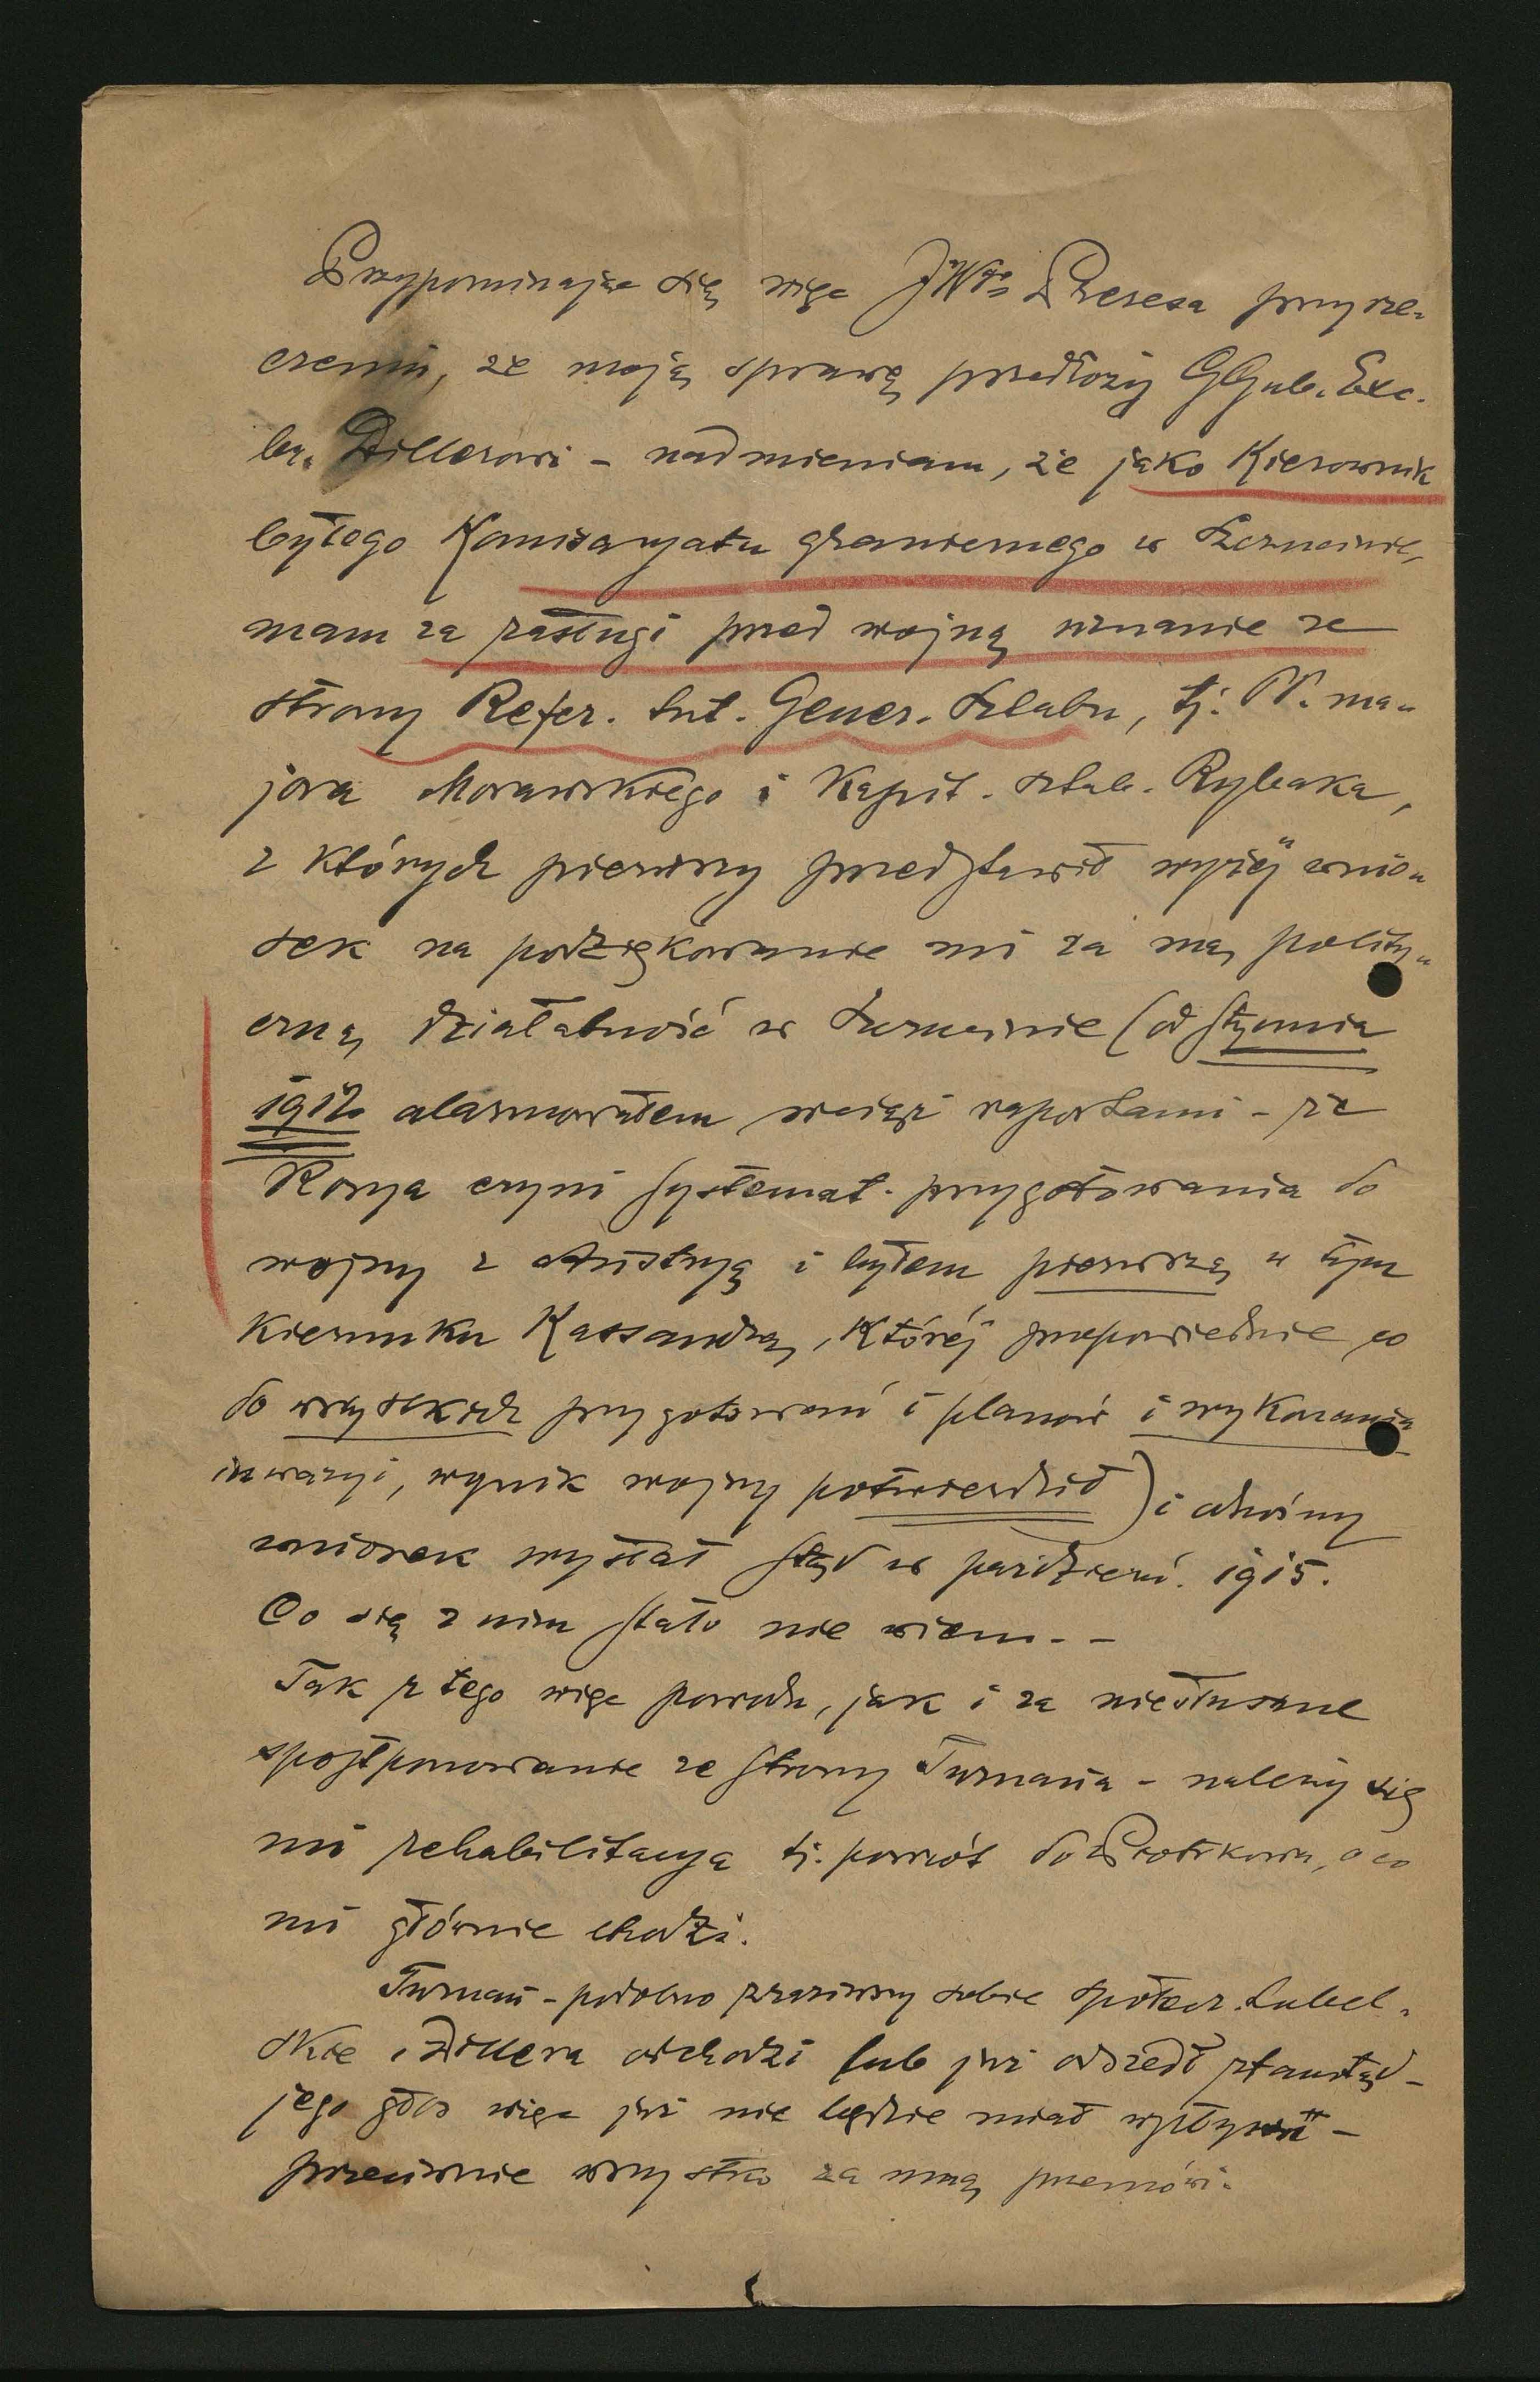 Przypominając się więc JWgo Prezesa przyrze-
czeniu, że moją sprawę przedłoży GGub. Exc.
br. Dillerowi – nadmieniam, że jako Kierownik
byłego Komisaryatu granicznego w Szczucinie,
mam za zasługi przed wojną uznanie ze
strony Refer. Int. Gener. Sztabu, tj. PP. ma-
jora Morawskiego i Kapit. sztab. Rybaka,
z których pierwszy przedstawił wyżej wnio-
sek na podziękowanie mi za mą polity-
czną działalność w Szczucinie (od stycznia
1912 alarmowałem wciąż raportami – że
Rosya czyni systemat. przygotowania do
wojny z Austryą i byłem pierwszą w tym
kierunku Kassandrą, której przepowiednie co
do wszystkich przygotowań i planów i wykonania
inwazyi, wynik wojny potwierdził) i odnośny
wniosek wysłał stąd w paździer. 1915.
Co się z nim stało nie wiem. –
Tak z tego więc powodu, jak i za niesłuszne
spostponowanie ze strony Turnaua – należy się
mi rehabilitacya tj. powrót do Piotrkowa, o co
mi głównie chodzi.
Turnau – podobno zraziwszy sobie społecz. Lubel-
skie i Dillera odchodzi lub już odszedł stamtąd –
jego głos więc już nie będzie miał –
przeciwnie wszystko za mną przemówi.